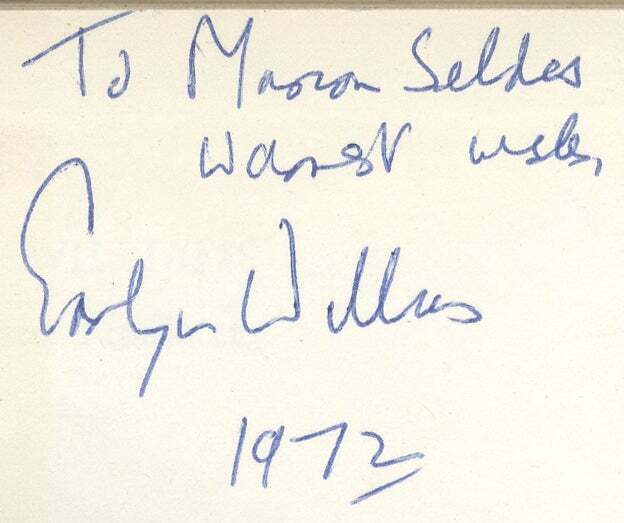 To Marian Seldes
warmest wishes,
Emlyn Williams
1972